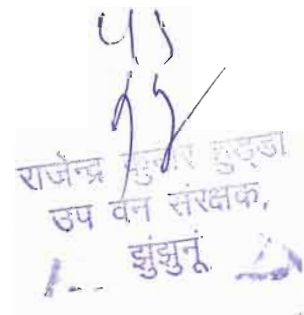 राजेन्द्र कुमार हुड्डा
उप वन संरक्षक,
झुंझुनूं